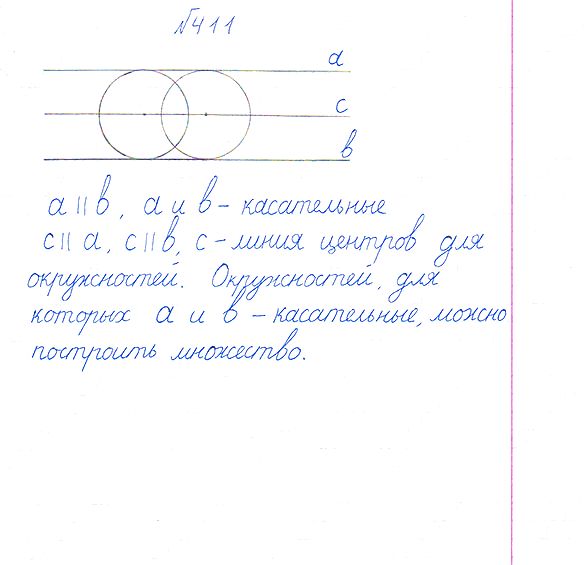 №411
a
c
b
a || b, a и b - касательные
c || a, c || b, c - линия центров для
окружностей. Окружностей, для
которых a и b - касательные, можно
построить множество.